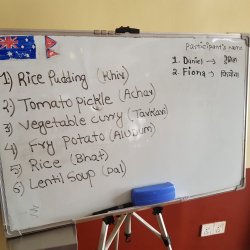 participant's name
1. Daniel →
2. Fiona →
1) Rice Pudding (Khir)
2) Tomato pickle (Achar)
3) Vegetable curry (Tarkari)
4) Fry Potato (Aludum)
5) Rice (Bhat)
6) Lentil Soup (Dal)